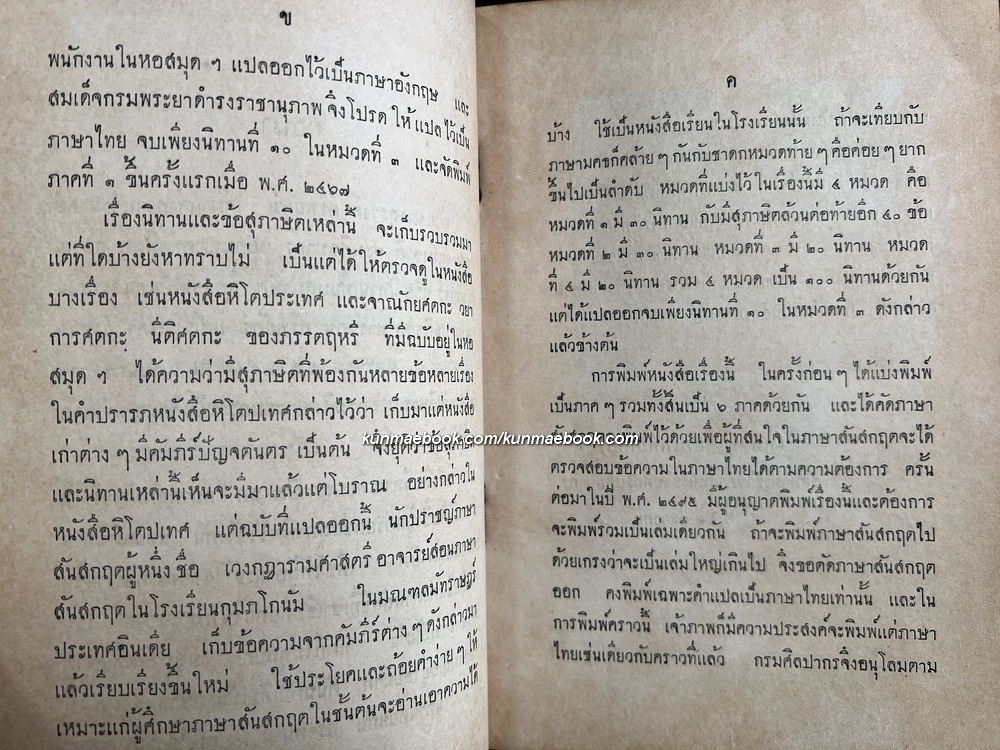 ข
พนักงานในหอสมุด ฯ แปลออกไว้เป็นภาษาอังกฤษ และ
สมเด็จกรมพระยาดำรงราชานุภาพ จึงโปรด ให้ แปลไว้เป็น
ภาษาไทย จบเพียงนิทานที่ ๑๐ ในหมวดที่ ๓ และจัดพิมพ์
ภาคที่ ๑ ขึ้นครั้งแรกเมื่อ พ.ศ. ๒๔๖๗
เรื่องนิทานและข้อสุภาษิตเหล่านี้ จะเก็บรวบรวมมา
แต่ที่ใดบ้างยังหาทราบไม่ เป็นแต่ได้ให้ตรวจดูในหนังสือ
บางเรื่อง เช่นหนังสือหิโตประเทศ และจาณักยศตกะ วยา
การศตกะ นีติศตกะ ของภรรตฤหรี ที่มีฉบับอยู่ในหอ
สมุด ฯ ได้ความว่ามีสุภาษิตที่พ้องกันหลายข้อหลายเรื่อง
ในคำปรารภหนังสือหิโตปเทศกล่าวไว้ว่า เก็บมาแต่หนังสือ
เก่าต่าง ๆ มีคัมภีร์ปัญจตันตร เป็นต้น จึงยุติว่าข้อสุภาษิต
และนิทานเหล่านี้เห็นจะมีมาแล้วแต่โบราณ อย่างกล่าวใน
หนังสือหิโตปเทศ แต่ฉบับที่แปลออกนี้ นักปราชญ์ภาษา
สันสกฤตผู้หนึ่ง ชื่อ เวงกฎารามศาสตรี อาจารย์สอนภาษา
สันสกฤตในโรงเรียนกุมภโกนัม ในมณฑลมัทราษฎร์
ประเทศอินเดีย เก็บข้อความจากคัมภีร์ต่าง ๆ ดังกล่าวมา
แล้วเรียบเรียงขึ้นใหม่ ใช้ประโยคและถ้อยคำง่าย ๆ ให้
เหมาะแก่ผู้ศึกษาภาษาสันสกฤตในชั้นต้นจะอ่านเอาความได้
ค
บ้าง ใช้เป็นหนังสือเรียนในโรงเรียนนั้น ถ้าจะเทียบกับ
ภาษามคธก็คล้าย ๆ กันกับชาดกหมวดท้าย ๆ คือค่อย ๆ ยาก
ขึ้นไปเป็นลำดับ หมวดที่แบ่งไว้ในเรื่องนี้มี ๔ หมวด คือ
หมวดที่ ๑ มี ๓๐ นิทาน กับมีสุภาษิตล้วนต่อท้ายอีก ๔๐ ข้อ
หมวดที่ ๒ มี ๓๐ นิทาน หมวดที่ ๓ มี ๒๐ นิทาน หมวด
ที่ ๔ มี ๒๐ นิทาน รวม ๔ หมวด เป็น ๑๐๐ นิทานด้วยกัน
แต่ได้แปลออกจบเพียงนิทานที่ ๑๐ ในหมวดที่ ๓ ดังกล่าว
แล้วข้างต้น
การพิมพ์หนังสือเรื่องนี้ ในครั้งก่อน ๆ ได้แบ่งพิมพ์
เป็นภาค ๆ รวมทั้งสิ้นเป็น ๖ ภาคด้วยกัน และได้คัดภาษา
kunmaebook.com/kunmaebook.com
พิมพ์ไว้ด้วยเพื่อผู้ที่สนใจในภาษาสันสกฤตจะได้
ตรวจสอบข้อความในภาษาไทยได้ตามความต้องการ ครั้น
ต่อมาในปี พ.ศ. ๒๔๙๕ มีผู้อนุญาตพิมพ์เรื่องนี้และต้องการ
จะพิมพ์รวมเป็นเล่มเดียวกัน ถ้าจะพิมพ์ภาษาสันสกฤตไป
ด้วยเกรงว่าจะเป็นเล่มใหญ่เกินไป จึงขอตัดภาษาสันสกฤต
ออก คงพิมพ์เฉพาะคำแปลเป็นภาษาไทยเท่านั้น และใน
การพิมพ์คราวนี้ เจ้าภาพก็มีความประสงค์จะพิมพ์แต่ภาษา
ไทยเช่นเดียวกับคราวที่แล้ว กรมศิลปากรจึงอนุโลมตาม